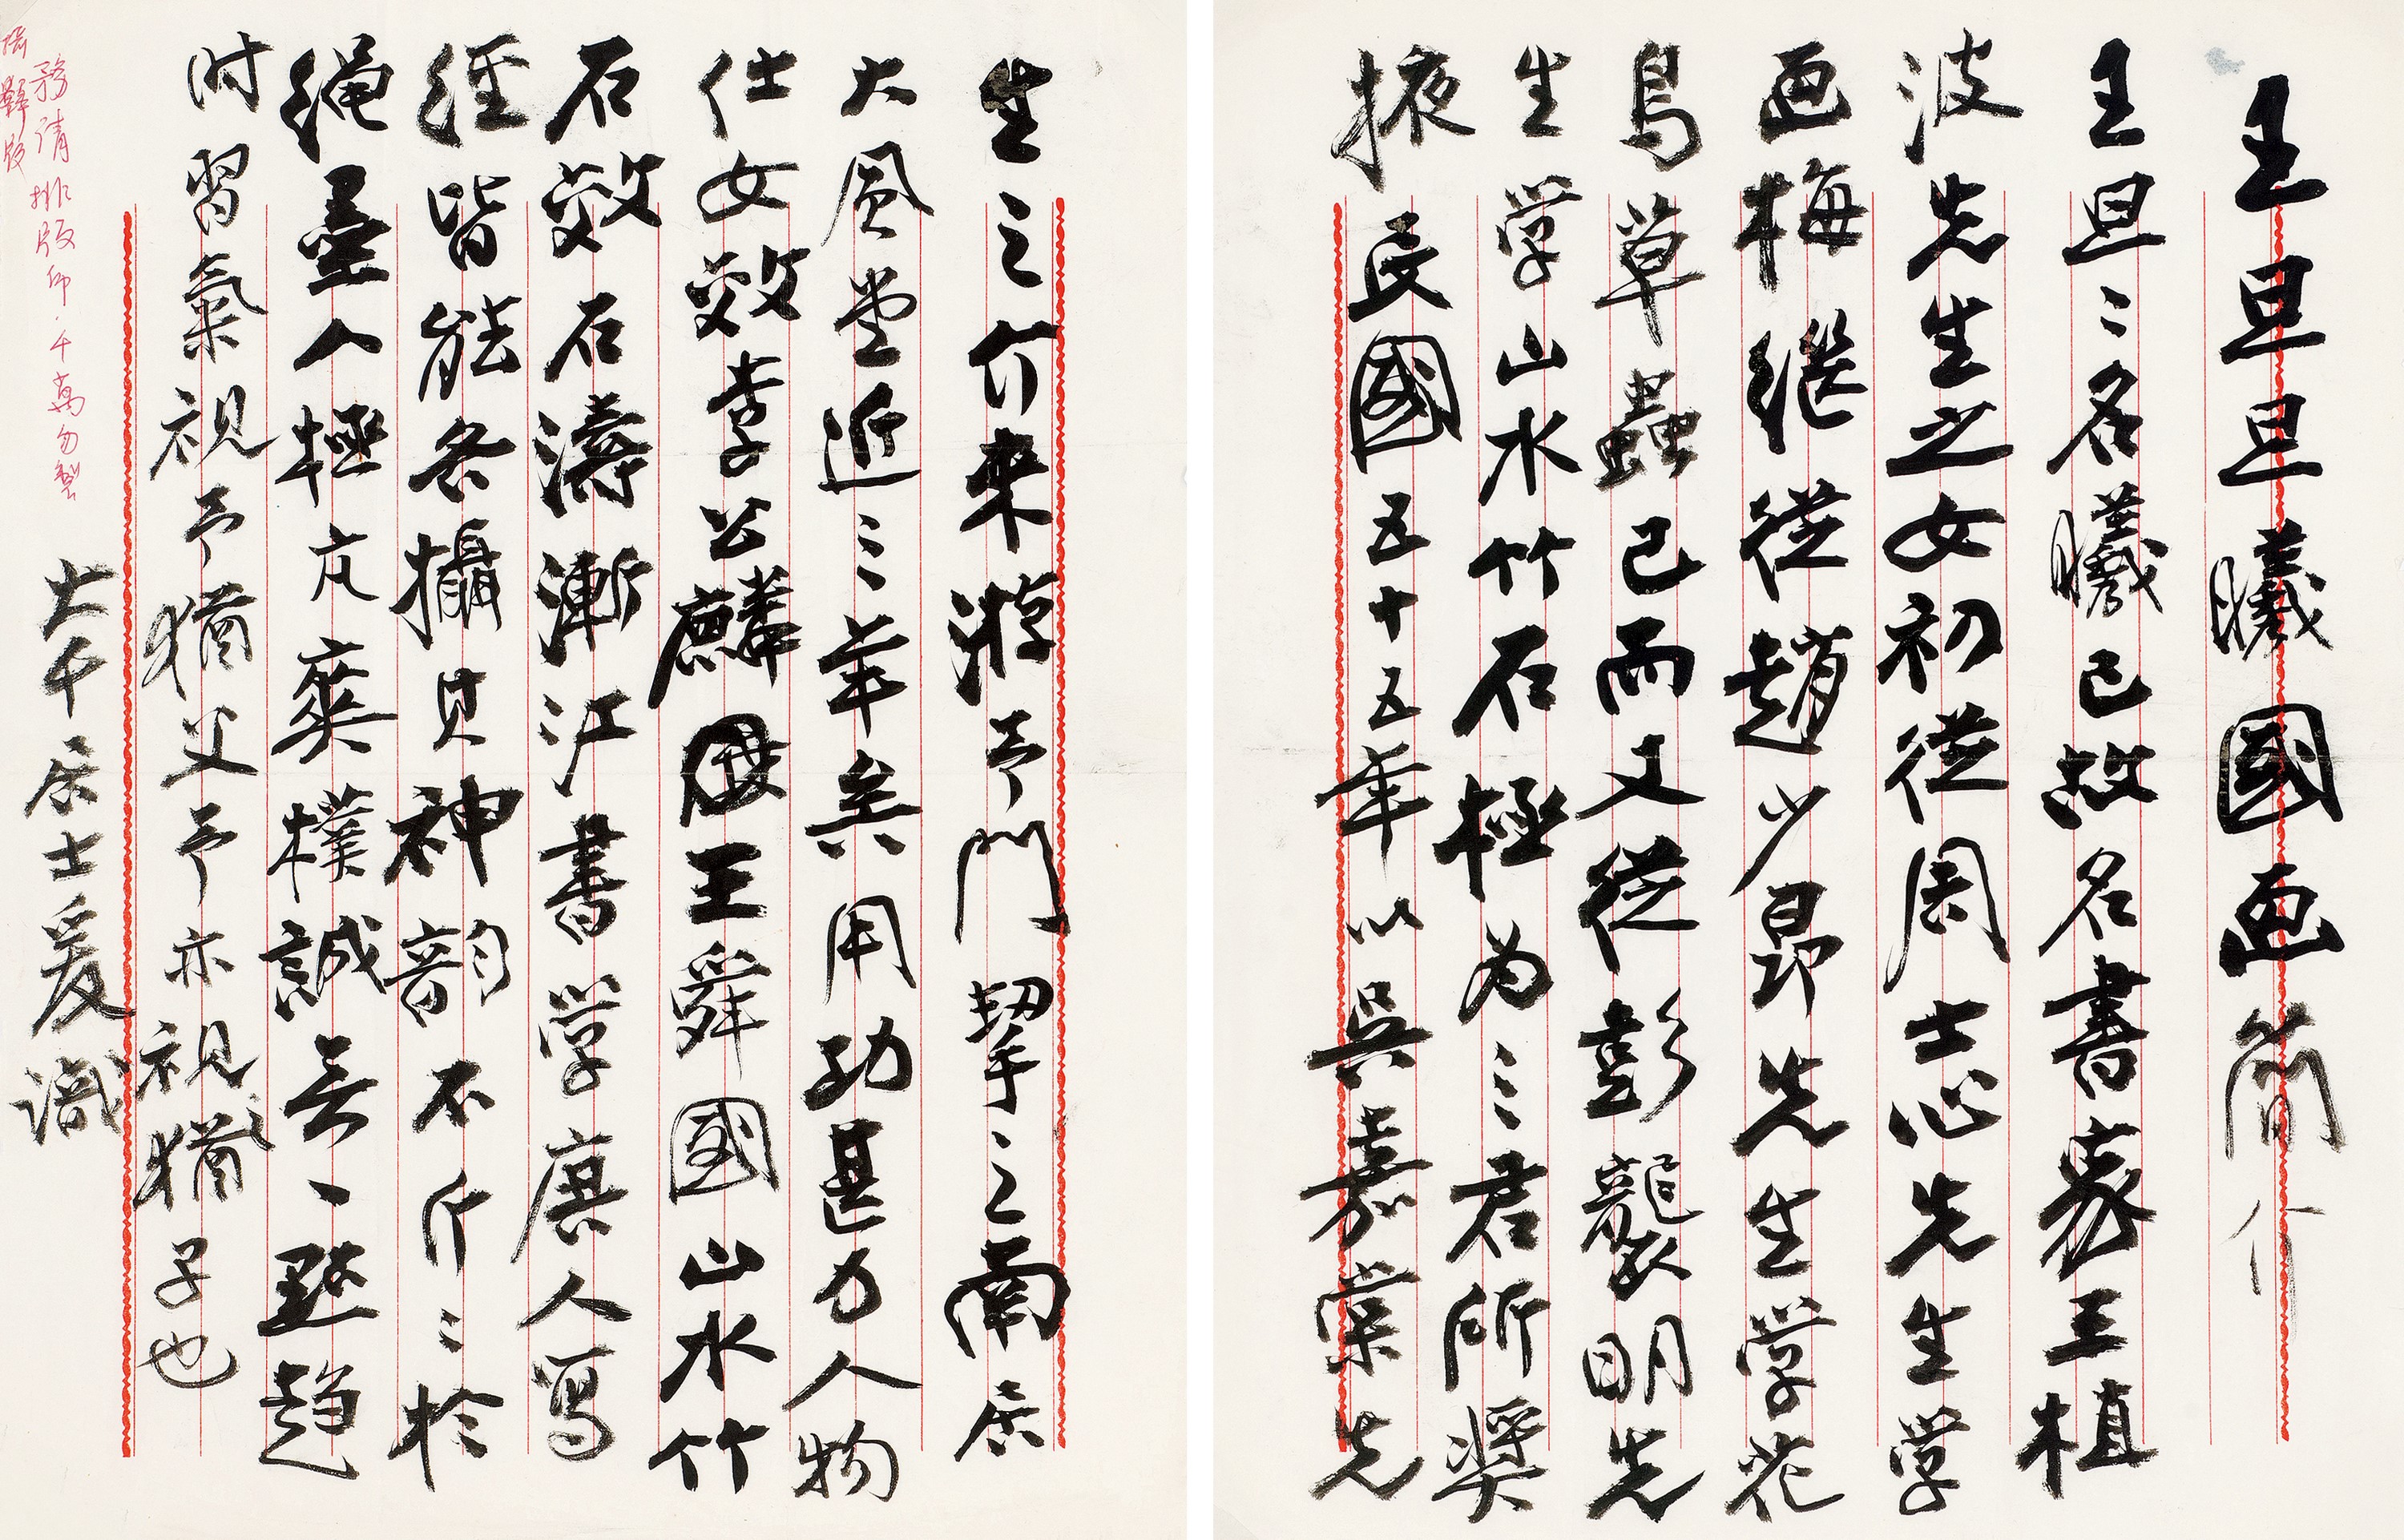 王旦旦曦國画简介
王旦〻名曦已故名書家王植
波先生之女初從周士心先生学
画梅继從趙少昂先生学花
鳥草蟲已而又從彭襲明先
生学山水竹石極为三君所奨
掖民國五十五年以吳嘉棠先
生之介来游予門挈之南居
大風堂近三年矣用功甚力人物
仕女效李公麟王舜國山水竹
石效石濤漸江書学唐人寫
經皆能各攝其神韵不斤〻於
绳墨人極亢爽樸誠无一點趋
时習氣視予猶父予亦視猶子也
大千居士爰識
務請排版印千萬勿製